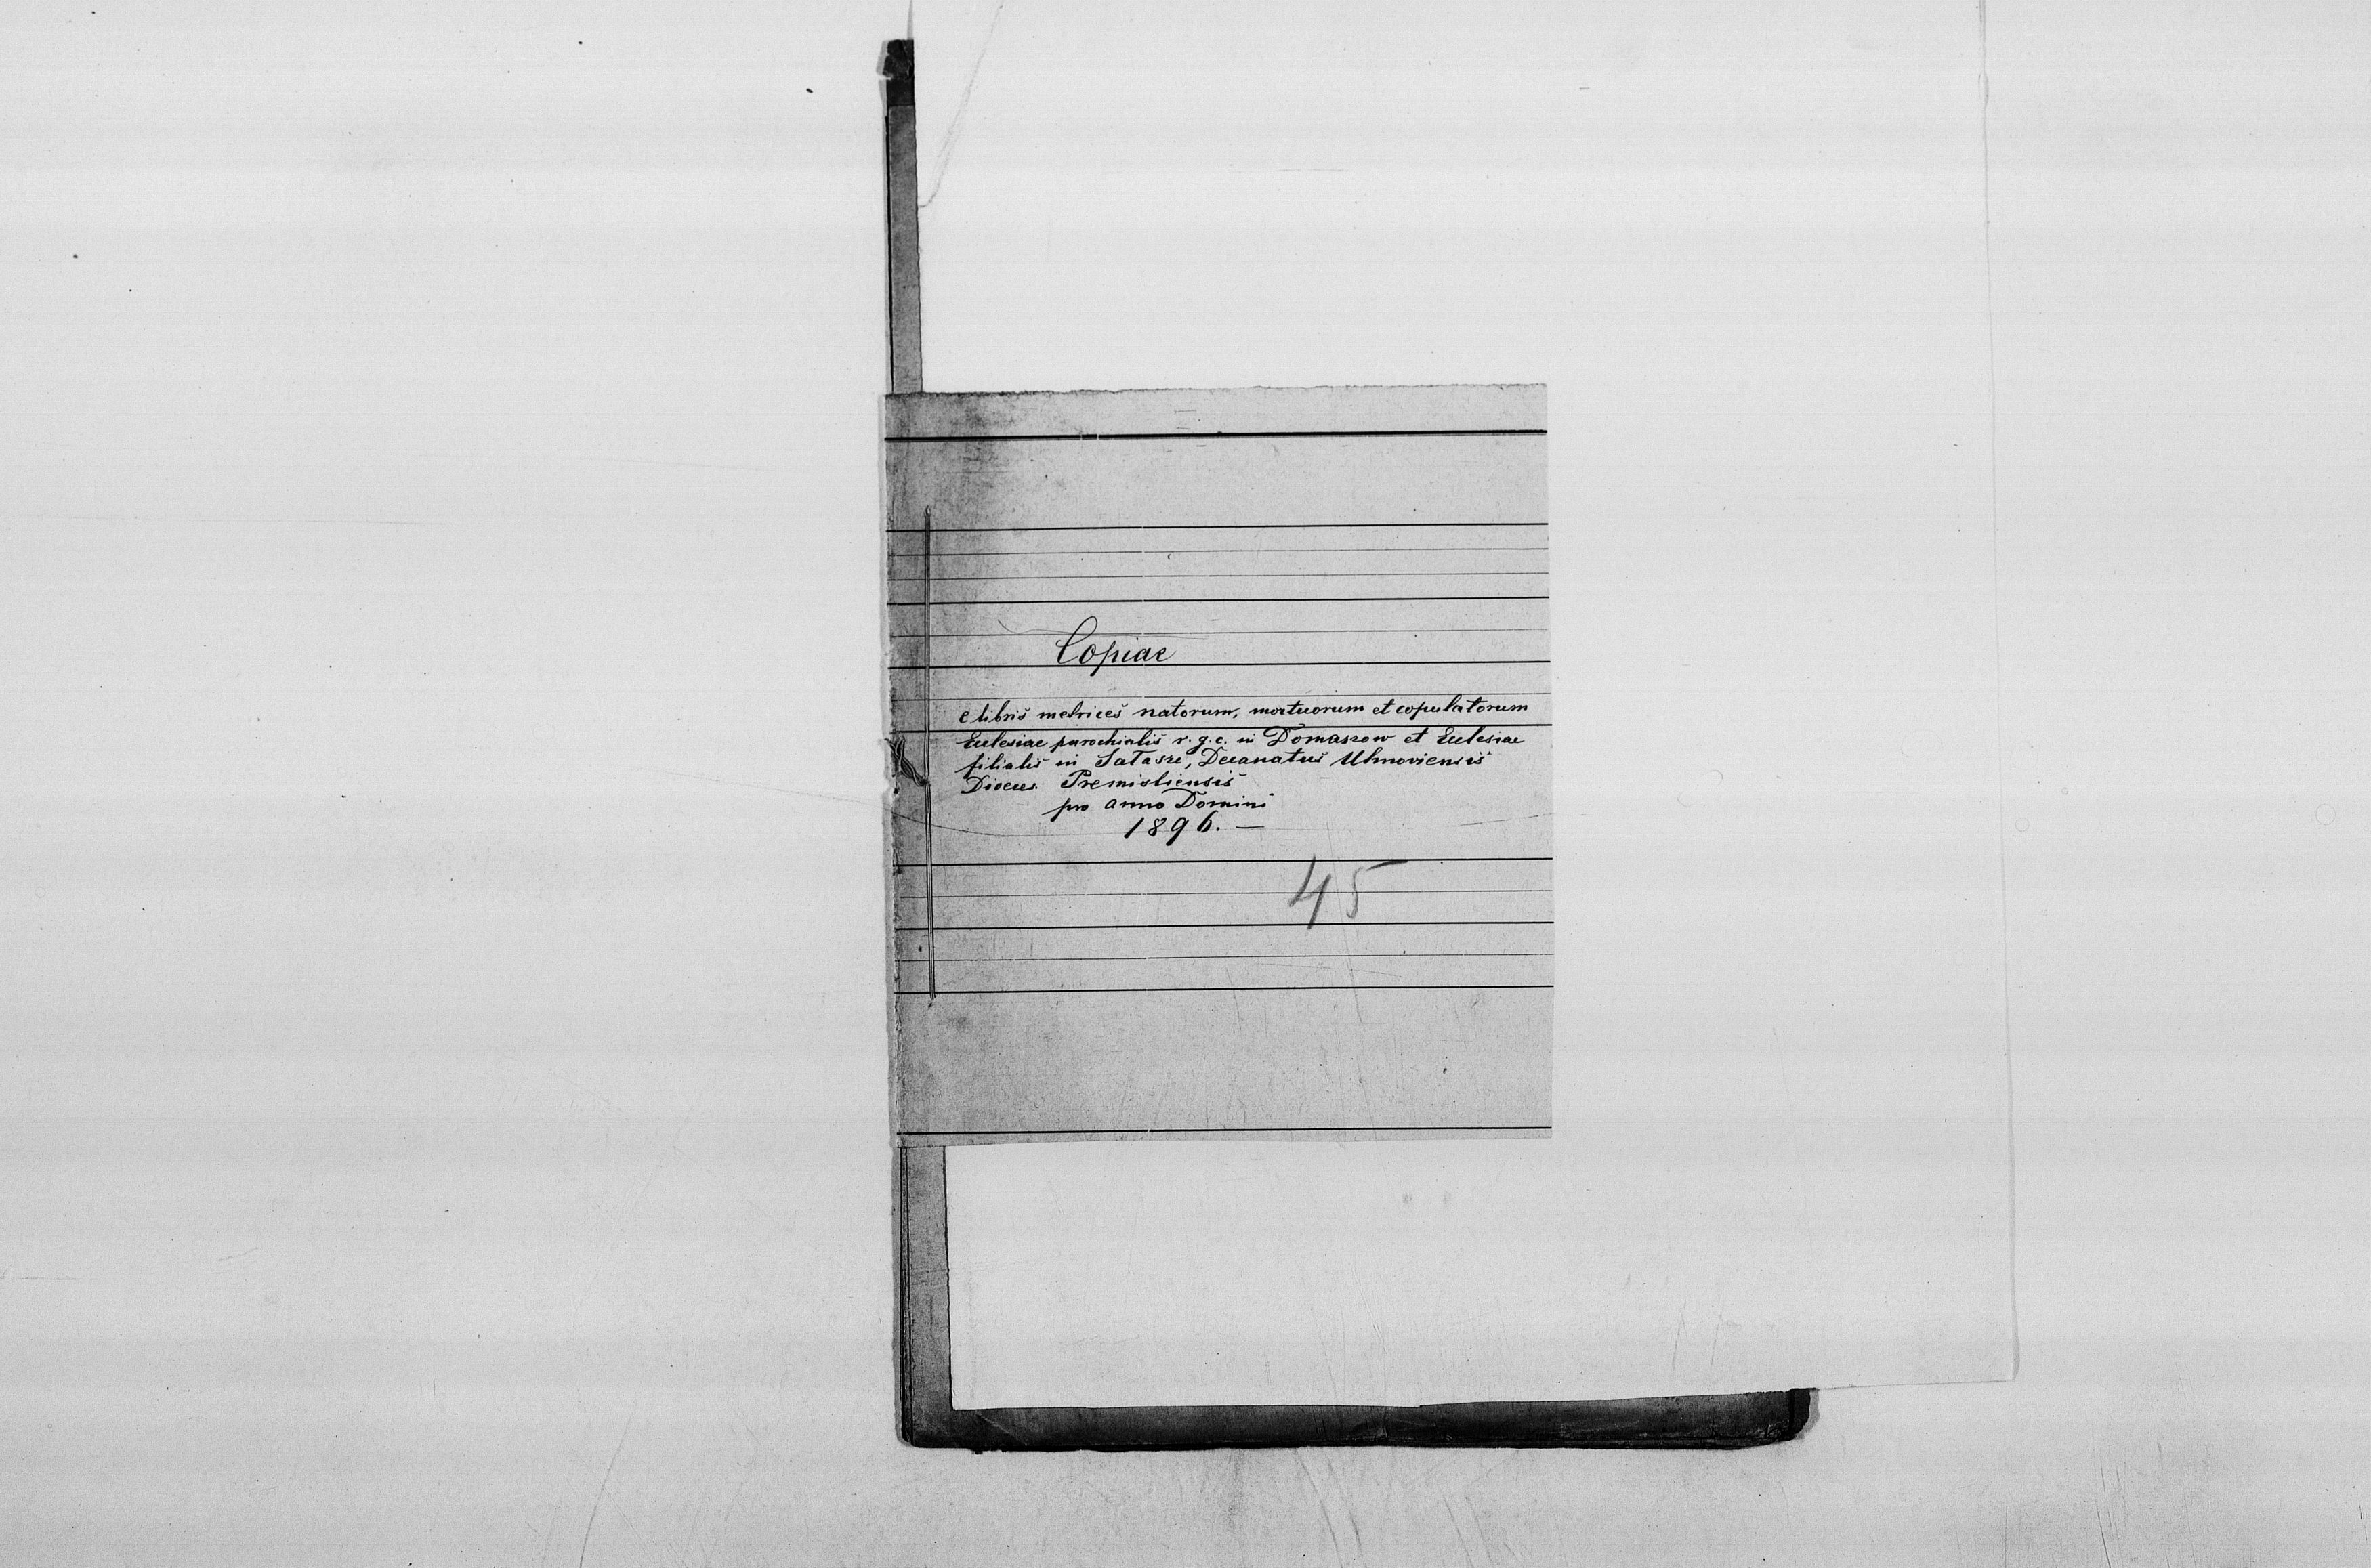 Copiae
e libris metrices natorum, mortuorum et copulatorum
Ecclesiae parochialis r. g. c. in Domaszow et Ecclesiae
filialis in Salasze, Decanatus Uhnoviensis
Dioeces. Premisliensis
pro anno Domini
1896. —
45